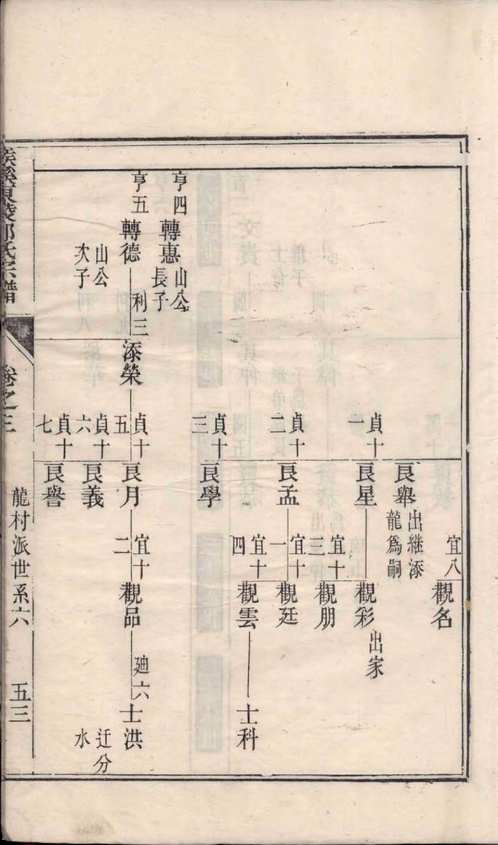 宜八
觀名
艮舉
出繼添
龍為嗣
貞十
一
艮星
觀彩
出家
宜十
三
觀朋
貞十
二
艮孟
宜十
一
觀廷
宜十
四
觀雲
士科
貞十
三
艮學
亨四
轉惠
山公
長子
亨五
轉德
山公
次子
利三
添榮
貞十
五
艮月
宜十
二
觀品
廸六
士洪
迁分
水
貞十
六
艮義
貞十
七
艮譽
氏宗譜
卷之三
龍村派世系六
五三